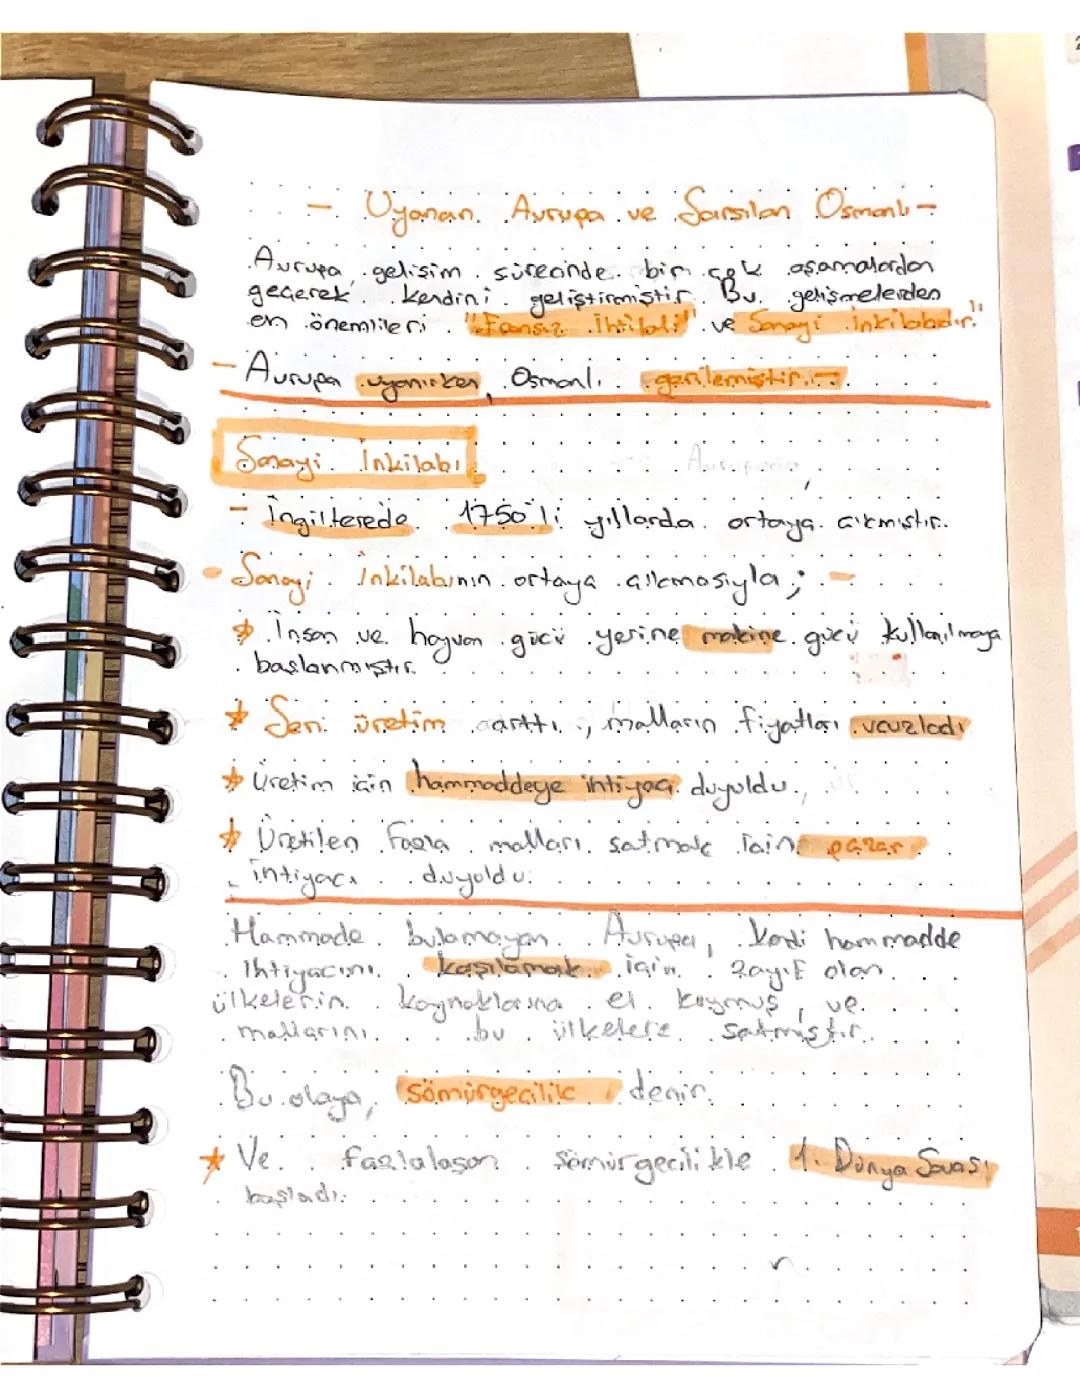 - Uyanan Avrupa ve Sarsılan Osmanlı -
Avrupa, gelişim sürecinde bir çok aşamalardan
geçerek kendini geliştirmiştir. Bu gelişmelerden
en önemlileri "Fransız İhtilali" ve Sanayi İnkilabıdır."
- Avrupa uyanırken, Osmanlı gerilemiştir. -
Sanayi İnkilabı
- İngilterede 1750'li yıllarda ortaya çıkmıştır.
- Sanayi İnkilabının ortaya çıkmasıyla; -
İnsan ve hayvan gücü yerine makine gücü kullanılmaya
başlanmıştır.
Seri üretim arttı, malların fiyatları ucuzladı
Üretim için hammaddeye ihtiyaç duyuldu.
Üretilen fazla malları satmak için pazar
ihtiyacı duyuldu.
Hammade bulamayan Avrupa, kendi hammadde
ihtiyacını karşılamak için zayıf olan
ülkelerin kaynaklarına el koymuş, ve
mallarını bu ülkelere satmıştır.
Bu olaya, sömürgecilik denir.
Ve fazlalaşan sömürgecilikle 1. Dünya Savaşı
başladı.